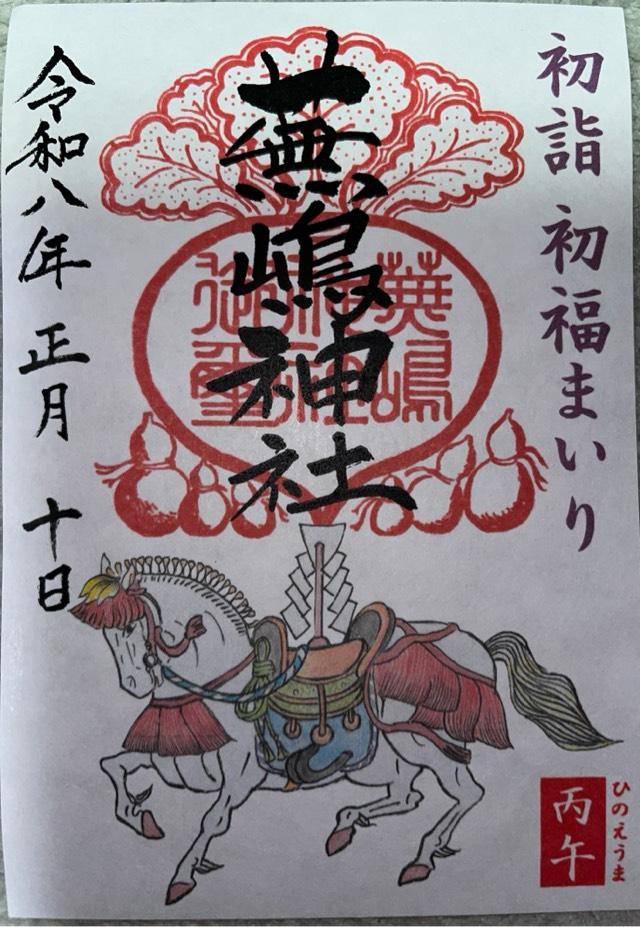 初詣 初福まいり
蕪嶋神社
蕪嶋神社御璽
令和八年 正月 十日
丙午
ひのえうま